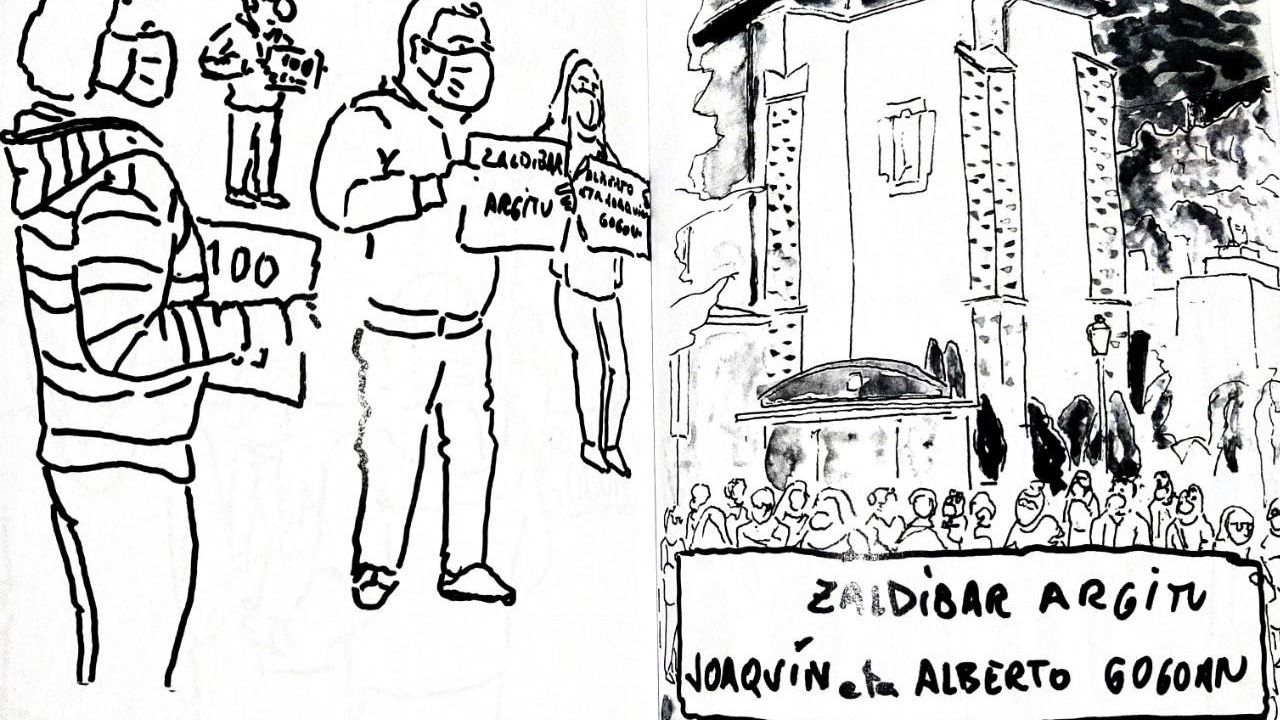 100
ZALDiBAR
ARGiTU
ALBERTO
ETA JOAQUIN
GOGOAN
100
ZALDiBAR ARGiTU
JOAQUÍN eta ALBERTO GOGOAN